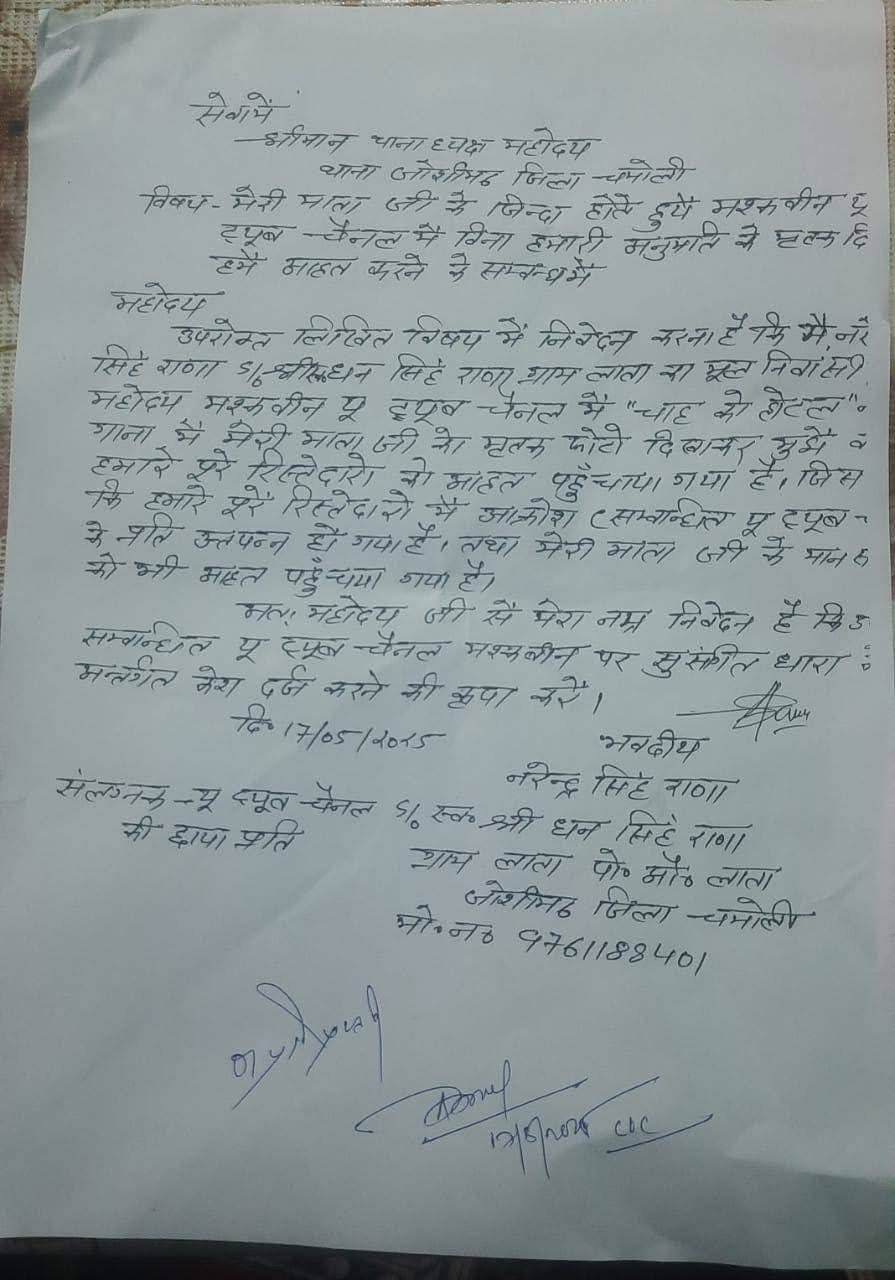 सेवामें
श्रीमान थानाध्यक्ष महोदय
थाना जोशीमठ जिला चमोली
विषय - मेरी माता जी के जिन्दा होते हुये मश्कबीन यू
ट्यूब चैनल मै बिना हमारी अनुमति के मृतक दि
हमै आहत करने के सम्बन्ध मै
महोदय
उपरोक्त लिखित विषय मै निवेदन करना है कि मै नरे
सिंह राणा S/o धन सिंह राणा ग्राम लाता का मूल निवासी
महोदय मश्कबीन यू ट्यूब चैनल मै "चाह को होटल"
गाना मै मेरी माता जी का मृतक फोटो दिखाकर मुझे व
हमारे पूरे रिस्तेदारो को आहत पहुँचाया गया है। जिस
कि हमारे पूरे रिस्तेदारो मै आक्रोश (सम्बन्धित यू ट्यूब
के प्रति उत्पन्न हो गया है। तथा मेरी माता जी के मान ह
को भी आहत पहुँचया गया है।
अतः महोदय जी से मेरा नम्र निवेदन है कि उ
सम्बन्धित यू ट्यूब चैनल मश्कबीन पर धारा
अन्तर्गत केश दर्ज करने की कृपा करें।
दि० 17/05/2025
भवदीय
नरेन्द्र सिंह राणा
संलग्नक - यू ट्यूब चैनल S/o स्व० श्री धन सिंह राणा
की छाया प्रति
ग्राम लाता पो० ऑ० लाता
जोशीमठ जिला चमोली
मो० न० 9761188401